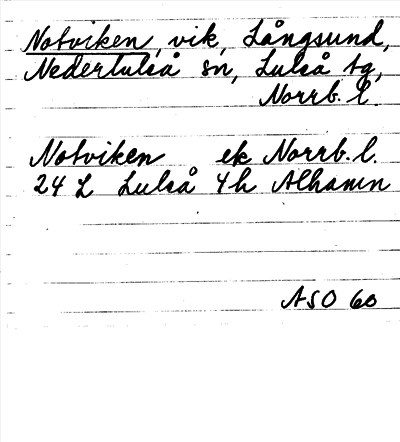 Notviken, vik, Långsund,
Nederluleå sn, Luleå tg,
Norrb. l.
Notviken ek Norrb. l.
24 L Luleå 4h Alhamn
ASO 60